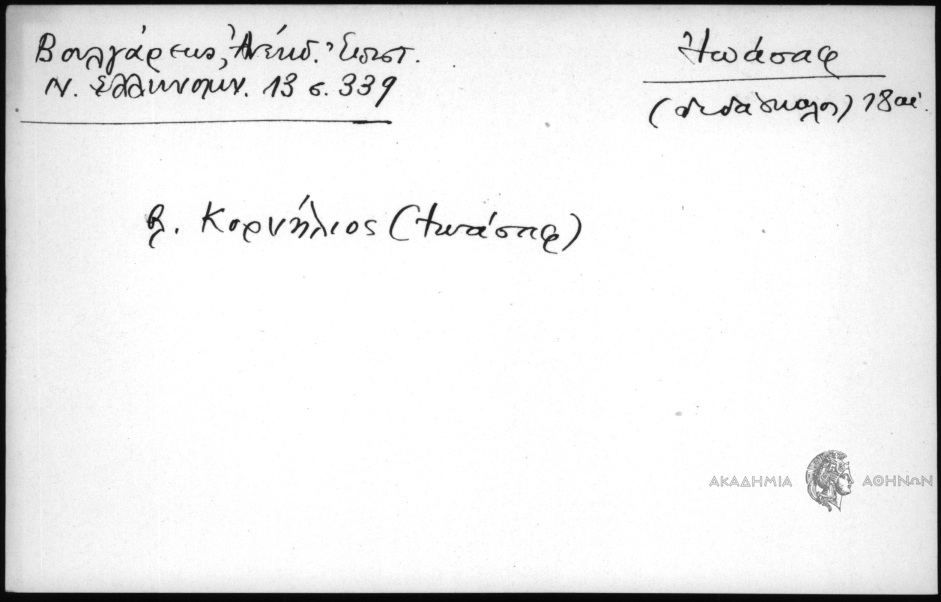 Βουλγάρεως, Ἀνέκδ. Ἐπιστ.
Ν. Ἑλληνομν. 13 σ. 339
Ἰωάσαφ
(διδάσκαλος) 18 αἰ.
βλ. Κορνήλιος (Ἰωάσαφ)
ΑΚΑΔΗΜΙΑ ΑΘΗΝΩΝ